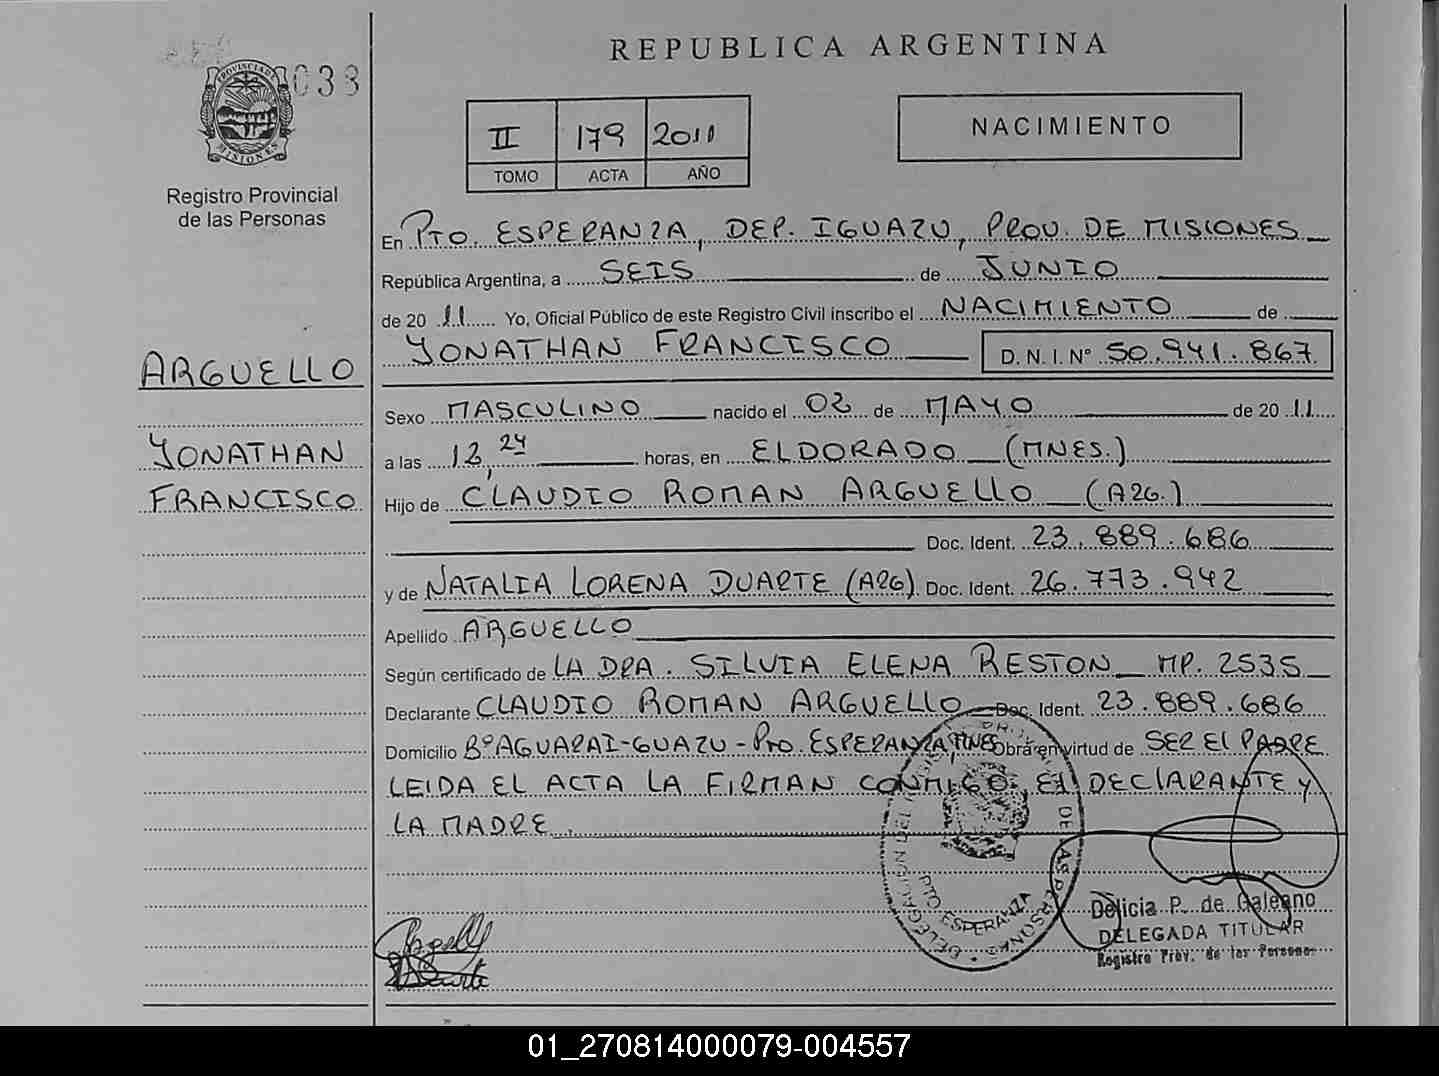 REPUBLICA ARGENTINA
038
PROVINCIA DE MISIONES
Registro Provincial
de las Personas
II 179 2011
TOMO ACTA AÑO
NACIMIENTO
En PTO. ESPERANZA, DEP. IGUAZU, PROV. DE MISIONES
República Argentina, a SEIS de JUNIO
de 20 11 Yo, Oficial Público de este Registro Civil inscribo el NACIMIENTO de
YONATHAN FRANCISCO D. N. I. Nº 50.941.867
ARGUELLO
YONATHAN
FRANCISCO
Sexo MASCULINO nacido el 02 de MAYO de 20 11
a las 12,24 horas, en ELDORADO (MNES.)
Hijo de CLAUDIO ROMAN ARGUELLO (ARG.)
Doc. Ident. 23.889.686
y de NATALIA LORENA DUARTE (ARG) Doc. Ident. 26.773.942
Apellido ARGUELLO
Según certificado de LA DRA. SILVIA ELENA RESTON MP. 2535
Declarante CLAUDIO ROMAN ARGUELLO Doc. Ident. 23.889.686
Domicilio Bº AGUARAI-GUAZU - PTO. ESPERANZA, MNES Obra en virtud de SER EL PADRE
LEIDA EL ACTA LA FIRMAN CONMIGO, EL DECLARANTE Y
LA MADRE.
PTO ESPERANZA
Delicia P. de Galeano
DELEGADA TITULAR
Registro Prov. de las Personas
01_270814000079-004557